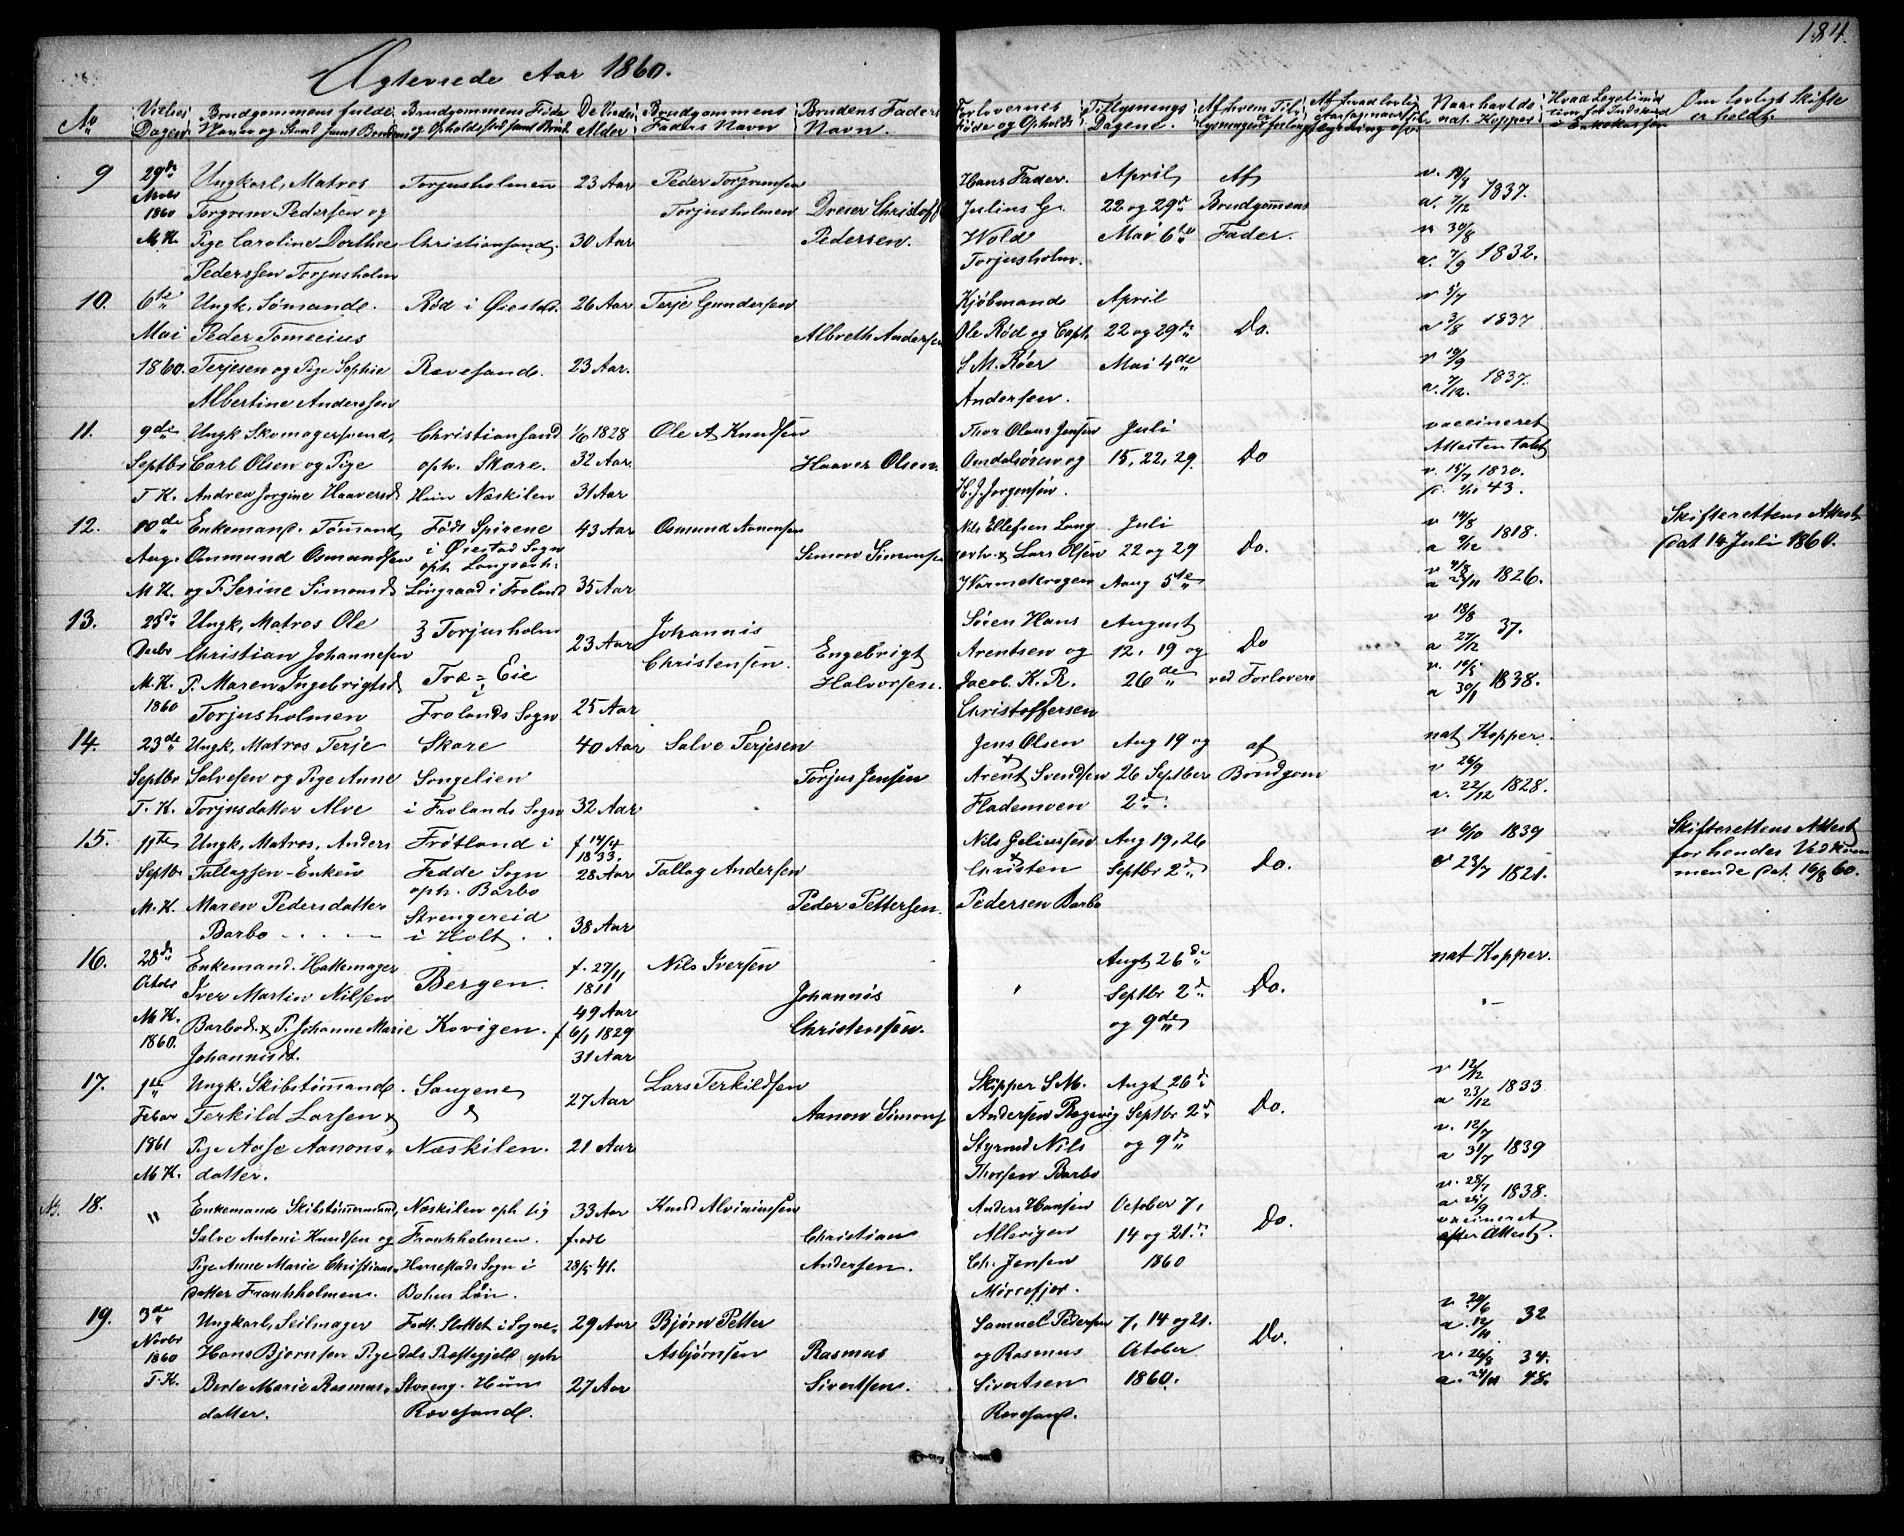 184.
Ægteviede Aar 1860.
No
Vielses Dagen
Brudgommens fulde Navn og Stand samt Brudens
Brudgommens Føde og Opholdssted samt Brud.
De Viedes Alder
Brudgommens Faders Navn
Brudens Faders Navn.
Forlovernes Føde og Opholds
Tillysnings Dagene.
Naar havt de nat. Kopper
Om lovligt Skifte er holdt.
9 29de Novbr 1860 M. K.
Ungkarl, Matros
Torgrim Pedersen og
Pige Caroline Dorthea
Pederssen Torjusholm
Torjusholmen
Christiansand.
23 Aar
30 Aar
Peder Torgrimsen
Torjusholmen
Dreier Christoff
Pedersen.
Hans Fader.
Julius G.
Wold
Torjusholm.
April
22 og 29de
Mai 6te
Af
Brudgommens
Fader.
v. 19/9
a. 7/12 1837.
v 30/8
a. 7/9 1832.
10. 6te
Mai
1860.
Ungk. Sømand
Peder Tomecius
Terjesen og Pige Sophie
Albertine Anderssen
Rød i Øiestad.
Rævesand.
26 Aar
23 Aar.
Terje Gundersen
Albreth Andersen
Kjøbmand
Ole Rød og Capt.
S M. Røer
Andersen.
April
22 og 29de
Mai 4de
Do.
v 5/7
a 3/8 1837
v 19/9
a. 7/12. 1837.
11. 9de
Septbr
T. K.
Ungk Skomagersvend,
Carl Olsen og Pige
Andrea Jorgine Haaversd
Christiansand
oph. Skare.
Hun Næskilen
1/6 1828
32 Aar
31 Aar
Ole A Knudsen
Haaver Olsen.
Thor Olaus Jensen
Omdalsøren og
H. J. Jorgensen.
Juli
15, 22, 29.
Do
vaccineret
Attesten tabt
v. 15/7 1830.
43.
12. 10de
Aug.
M. K.
Enkemand. Tømmand
Osmund Osmundsen
og P Serine Simonsd
Født Spirene
i Øiestad Sogn
oph. Langsæth.
Løngraad i Froland
43 Aar
35 Aar
Osmund Aanonsen
Simon Simonsen
Nils Ellefsen Lang
sæth. & Lars Olsen
Warmekrogen
Juli
22 og 29
Aug 5te
Do.
v 14/8
a 9/12 1818.
v 4/8
a 23/11 1826.
Skifterettens Attest
dat 14 Juli 1860.
13. 23de
Decbr
M. K.
1860
Ungk, Matros Ole
Christian Johannesen
P. Maren Ingebrigtsd
Torjusholmen
Torjusholm
Træ= Eie
i
Frolands Sogn
23 Aar
25 Aar
Johannis
Christensen.
Engebrigt
Halvorsen.
Søren Hans
Arentsen og
Jacob. K. R.
Christoffersen
August
12, 19 og
26de
Do
ved Forlovers
v 18/8
a 27/12 37.
v. 16/8
a 30/1 1838.
14. 23de
Septbr
T. K.
Ungk, Matros Terje
Salvesen og Pige Anne
Torjusdatter Alve
Skare
Songelien
i Frolands Sogn
40 Aar
32 Aar
Salve Terjesen
Torjus Jensen
Jens Olsen
&
Arent Svendsen
Flademoen
Aug 19 og
26 Septber
2de.
af
Brudgom
nat Kopper.
v 26/9
a. 22/12 1828.
15. 11te
Septbr
M. K.
Ungk, Matros, Anders
Tallagsen - Enken
Maren Pedersdatter
Barbo
Frøtland i
Fedde Sogn
oph. Barbo
Strengereid
i Holt
f 14/4
1833.
28 Aar
38 Aar
Tallag Andersen
Peder Pettersen.
Nils Geliussen
&
Christen
Pedersen Barbo
Aug 19, 26
Septbr 2de
Do.
v 6/10 1839
v 23/7 1821.
Skifterettens Attest
for hendes Vedkom
mende dat. 16/8 60.
16. 28de
Octobr
M. K.
1860.
Enkemand. Hattemager
Iver Martin Nilsen
Barbod. & P. Johanne Marie
Johannisd.
Bergen.
Kovigen.
f. 27/11
1811
49 Aar
f 6/1 1829
31 Aar
Nils Iversen
Johannis
Christensen.
Augt 26de
Septbr 2de
og 9de
Do.
nat Kopper.
17. 1te
Febar
1861
M K.
Ungk. Skibstømmand.
Terkild Larsen &
Pige Aase Aanons
datter.
Saugene
&
Næskilen.
27 Aar
21 Aar
Lars Terkildsen
Aanon Simons
Skipper S M.
Andersen Bogevig
Styrmd Nils
Thorsen Barbo
Augt 26de
Septbr 2de
og 9de
Do.
v 12/12
a 23/12 1833
v. 12/7
a 31/7 1839
18. "
Enkemand Skibstømmermand,
Salve Antoni Knudsen og
Pige Anne Marie Christians
datter Frankholmen.
Næskilen oph lig
Frankholmen.
Harrestads Sogn i
Bohus Län.
33 Aar
født
28/5 41.
Knud Alvininsen
Christian
Andersen.
Anders Hansen
Allevigen
Ch. Jensen
Mørrefjær.
October 7,
14 og 21de
1860
Do.
v. 28/7
a. 21/9 1838.
vaccineret
efter Attest.
19. 3de
Novbr
1860
T. K.
Ungkarl, Seilmager
Hans Bjørnsen Pige
Berte Marie Rasmus
datter.
Født. Slottet i Sogne
dals Præstegjeld oph
Støreng. Hun
Rævesand.
29 Aar
27 Aar
Bjørn Petter
Asbjørnsen
Rasmus
Sivertsen.
Samuel Pedersen
og Rasmus
Sivertsen
Rævesand.
7, 14 og 21.
October
1860.
Do.
v 20/6
a. 12/11 32
v. 26/8 34.
a. 24/11 48.